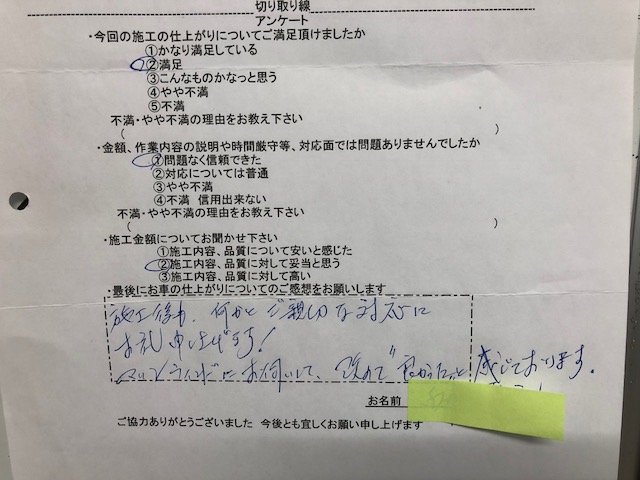 切り取り線
アンケート
・今回の施工の仕上がりについてご満足頂けましたか
①かなり満足している
②満足
③こんなものかなっと思う
④やや不満
⑤不満
不満・やや不満の理由をお教え下さい
( )
・金額、作業内容の説明や時間厳守等、対応面では問題ありませんでしたか
①問題なく信頼できた
②対応については普通
③やや不満
④不満 信用出来ない
不満・やや不満の理由をお教え下さい
( )
・施工金額についてお聞かせ下さい
①施工内容、品質について安いと感じた
②施工内容、品質に対して妥当と思う
③施工内容、品質に対して高い
・最後にお車の仕上がりについてのご感想をお願いします
施工後も、何かとご親切な対応に
お礼申し上げます!
にお伺いして、改めて"良かった"と感じております。
お名前
ご協力ありがとうございました 今後とも宜しくお願い申し上げます